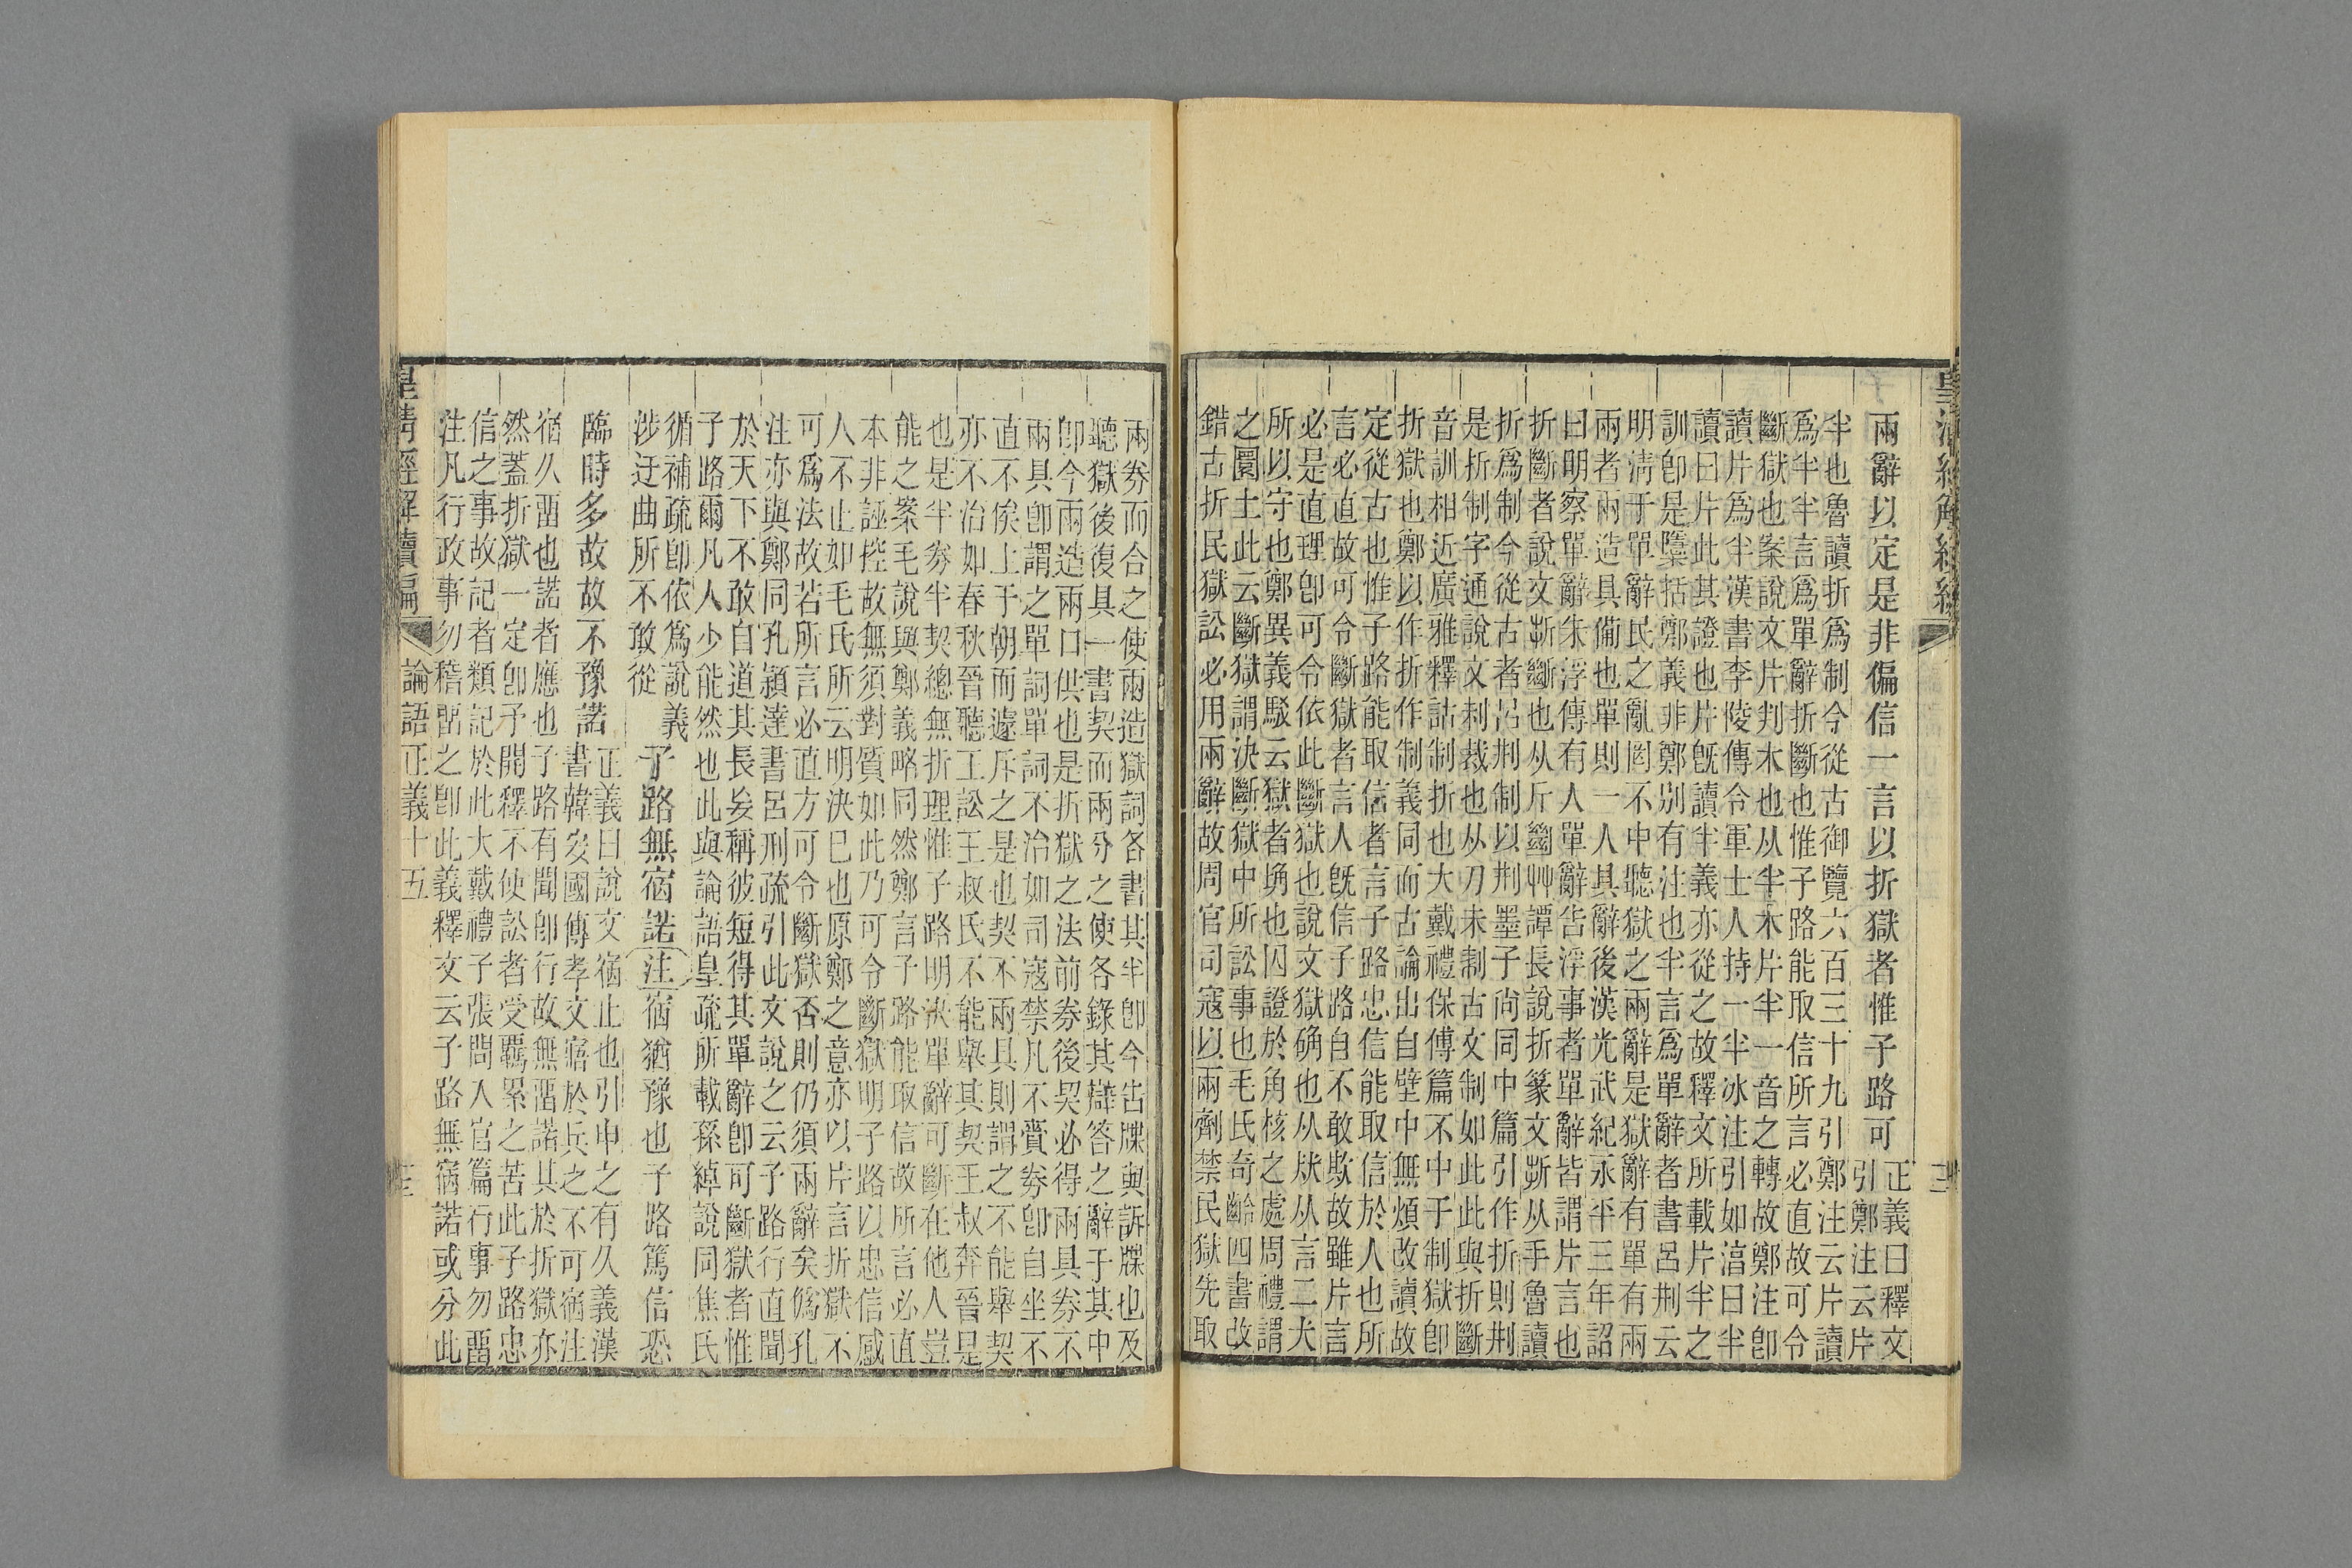 兩辭以定是非偏信一言以折獄者惟子路可
正義曰釋文
引鄭注云片
半也魯讀折爲制今從古御覽六百三十九引鄭注云片讀
爲半半言爲單辭折斷也惟子路能取信所言必直故可令
斷獄也案說文片判木也从半木片半一音之轉故鄭注卽
讀片爲半漢書李陵傳令軍士人持一半冰注引如湻曰半
讀曰片此其證也片旣讀半義亦從之故釋文所載片半之
訓卽是檃括鄭義非鄭別有注也半言爲單辭者書呂刑云
明淸于單辭民之亂罔不中聽獄之兩辭是獄辭有單有兩
兩者兩造具備也單則一人具辭後漢光武紀永平三年詔
曰明察單辭朱浮傳有人單辭告浮事者單辭皆謂片言也
折斷者說文斱斷也从斤斷艸譚長說折篆文斱从手魯讀
折爲制今從古者呂刑制以刑墨子尚同中篇引作折則刑
是折制字通說文制裁也从刀未制古文制如此此與折斷
音訓相近廣雅釋詁制折也大戴禮保傅篇不中于制獄卽
折獄也鄭以作折作制義同而古論出自壁中無煩改讀故
定從古也惟子路能取信者言子路忠信能取信於人也所
言必直故可令斷獄者言人旣信子路自不敢欺故雖片言
必是直理卽可令依此斷獄也說文獄确也从㹜从言二犬
所以守也鄭異義駁云獄者埆也囚證於角核之處周禮謂
之圜土此云斷獄謂決斷獄中所訟事也毛氏奇齡四書改
錯古折民獄訟必用兩辭故周官司寇以兩劑禁民獄先取
兩券而合之使兩造獄詞各書其半卽今告牒與訴牒也及
聽獄後復具一書契而兩分之使各錄其辯答之辭于其中
卽今兩造兩口供也是折獄之法前券後契必得兩具券不
兩具卽謂之單詞單詞不治如司寇禁凡不賫券卽自坐不
直不俟上于朝而遽斥之是也契不兩具則謂之不能舉契
亦不治如春秋晉聽王訟王叔氏不能舉其契王叔奔晉是
也是半券半契總無折理惟子路明決單辭可斷在他人豈
能之案毛說與鄭義略同然鄭言子路能取信故所言必直
本非誣控故無須對質如此乃可令斷獄明子路以忠信感
人不止如毛氏所云明決巳也原鄭之意亦以片言折獄不
可爲法故若所言必直方可令斷獄否則仍須兩辭矣僞孔
注亦與鄭同孔穎達書呂刑疏引此文說之云子路行直聞
於天下不敢自道其長妄稱彼短得其單辭卽可斷獄者惟
子路爾凡人少能然也此與論語皇疏所載孫綽說同焦氏
循補疏卽依爲說義
涉迂曲所不敢從
子路無宿諾注宿猶豫也子路篤信恐
臨時多故故不豫諾
正義曰說文宿止也引申之有久義漢
書韓安國傳孝文寤於兵之不可宿注
宿久畱也諾者應也子路有聞卽行故無畱諾其於折獄亦
然蓋折獄一定卽予開釋不使訟者受羈累之苦此子路忠
信之事故記者類記於此大戴禮子張問入官篇行事勿畱
注凡行政事勿稽畱之卽此義釋文云子路無宿諾或分此
皇淸經解續編
論語正義十五